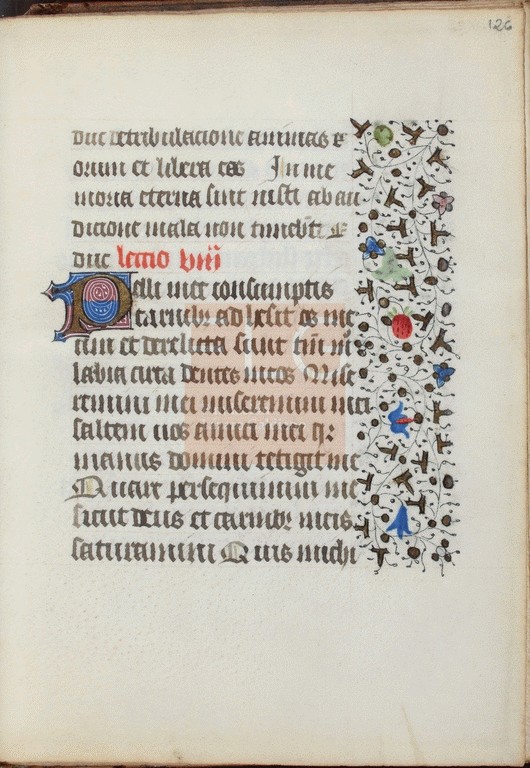 126
duc de tribulacione animas e
orum et libera eas In me
moria eterna sunt iusti ab au
dicione mala non timebūt E
duc lectio viii
Pelli mee consumptis
carnibꝫ adhesit os me
um et derelicta sunt tm̄ m̄
labia circa dentes meos Mise
remini mei miseremini mei
saltem uos amici mei qꝛ
manus domini tetigit me
Quare persequimini me
sicut deus et carnibꝫ meis
saturamini Quis michi